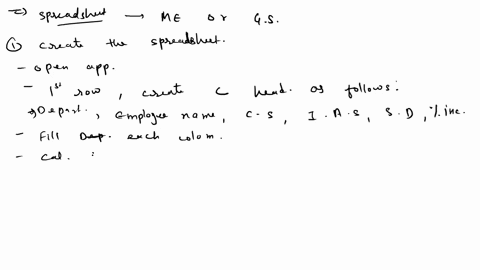 => spreadsheet → ME or G.S.
① create the spreadsheet.
- open app.
- 1st row, create C head. as follows:
→ Depart., employee name, C-S, I.A.S, S.D, % inc.
- Fill Dep. each colom.
- Cal. :